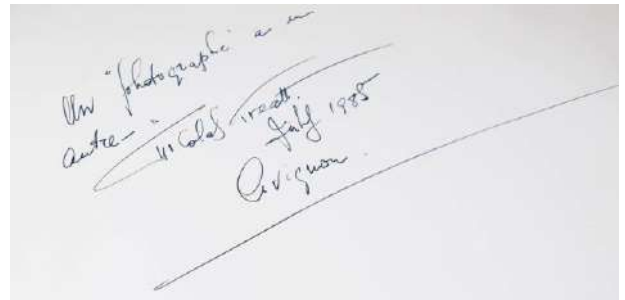 Un "photographe" a un
autre - "
Nicolas Treatt.
July 1985
Avignon.